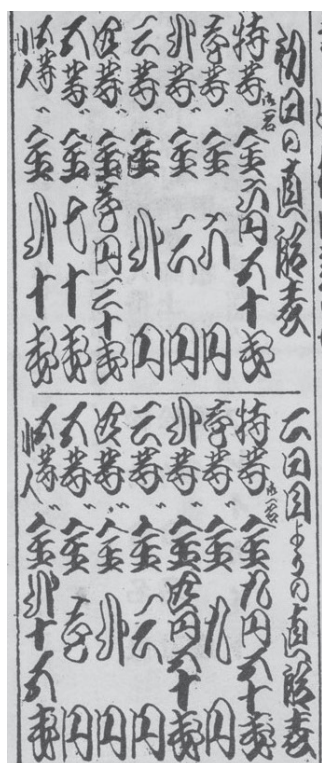 初日の直段表
特等 御一名 金六円五十銭
壱等 〃 金六円
弐等 〃 金三円
三等 〃 金弐円
四等 〃 金壱円三十銭
五等 〃 金七十銭
五等小人 〃 金弐十銭
二日目よりの直段表
特等 御一名 金九円五十銭
壱等 〃 金九円
弐等 〃 金四円五十銭
三等 〃 金三円
四等 〃 金弐円
五等 〃 金壱円
五等小人 〃 金弐十五銭